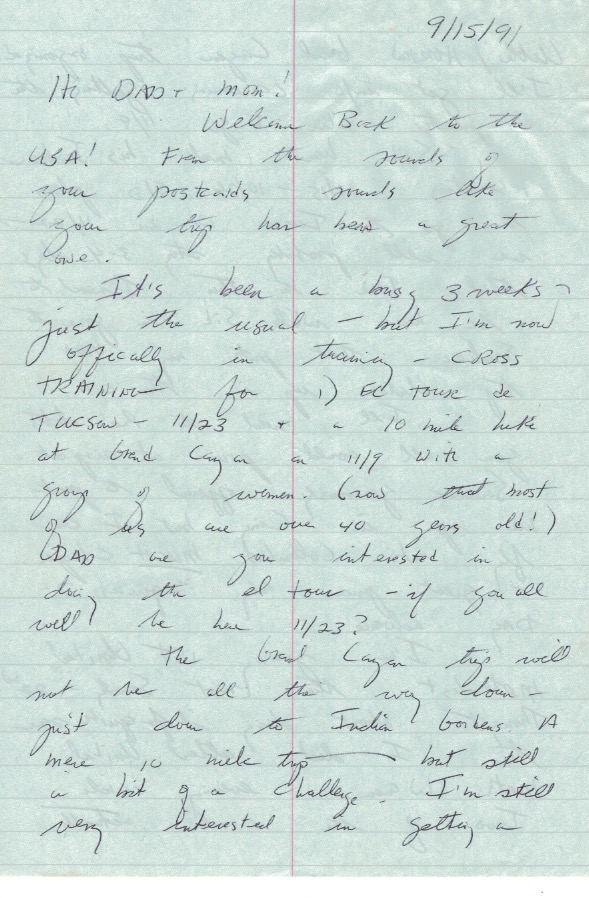 9/15/91
Hi DAD + Mom!
Welcome Back to the
USA! From the sounds of
your postcards sounds like
your trip has been a great
one.
It's been a busy 3 weeks -
just the usual - but I'm now
offically in training - CROSS
TRAINING for 1) El Tour de
TUCSON - 11/23 + a 10 mile hike
at Grand Canyon on 11/9 with a
group of women. (now that most
of us are over 40 years old!)
DAD are you interested in
doing the el tour - if you all
will be here 11/23?
The Grand Canyon trip will
not be all the way down -
just down to Indian Gardens. A
mere 10 mile trip - but still
a bit of a challenge. I'm still
very interested in getting a